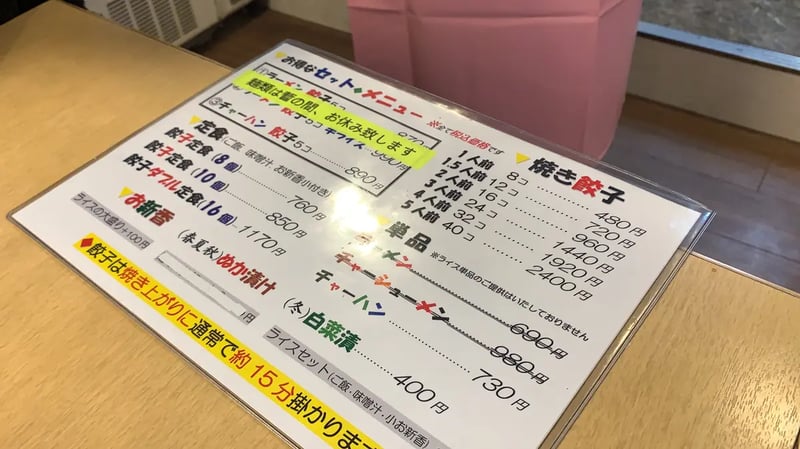 ▼お得なセット◆メニュー ※全て税込価格です
麺類は暫の間、お休み致します
③チャーハン 餃子5コ ……… 890円
▼定食(ご飯, 味噌汁, お新香小付き)
餃子定食(8個) ………… 760円
餃子定食(10個) ………… 850円
餃子ダブル定食(16個) … 1170円
ライスの大盛り+100円
▼お新香
(春夏秋)ぬか漬け
円
(冬)白菜漬 ……… 400円
▼焼き餃子
1人前 8コ ……… 480円
1.5人前 12コ ……… 720円
2人前 16コ ……… 960円
3人前 24コ ……… 1440円
4人前 32コ ……… 1920円
5人前 40コ ……… 2400円
▼単品 ※ライス単品のご提供はいたしておりません
ラーメン 690円
チャーシューメン 980円
チャーハン ……… 730円
ライスセット(ご飯・味噌汁・小お新香)
◆餃子は焼き上がりに通常で約15分掛かります